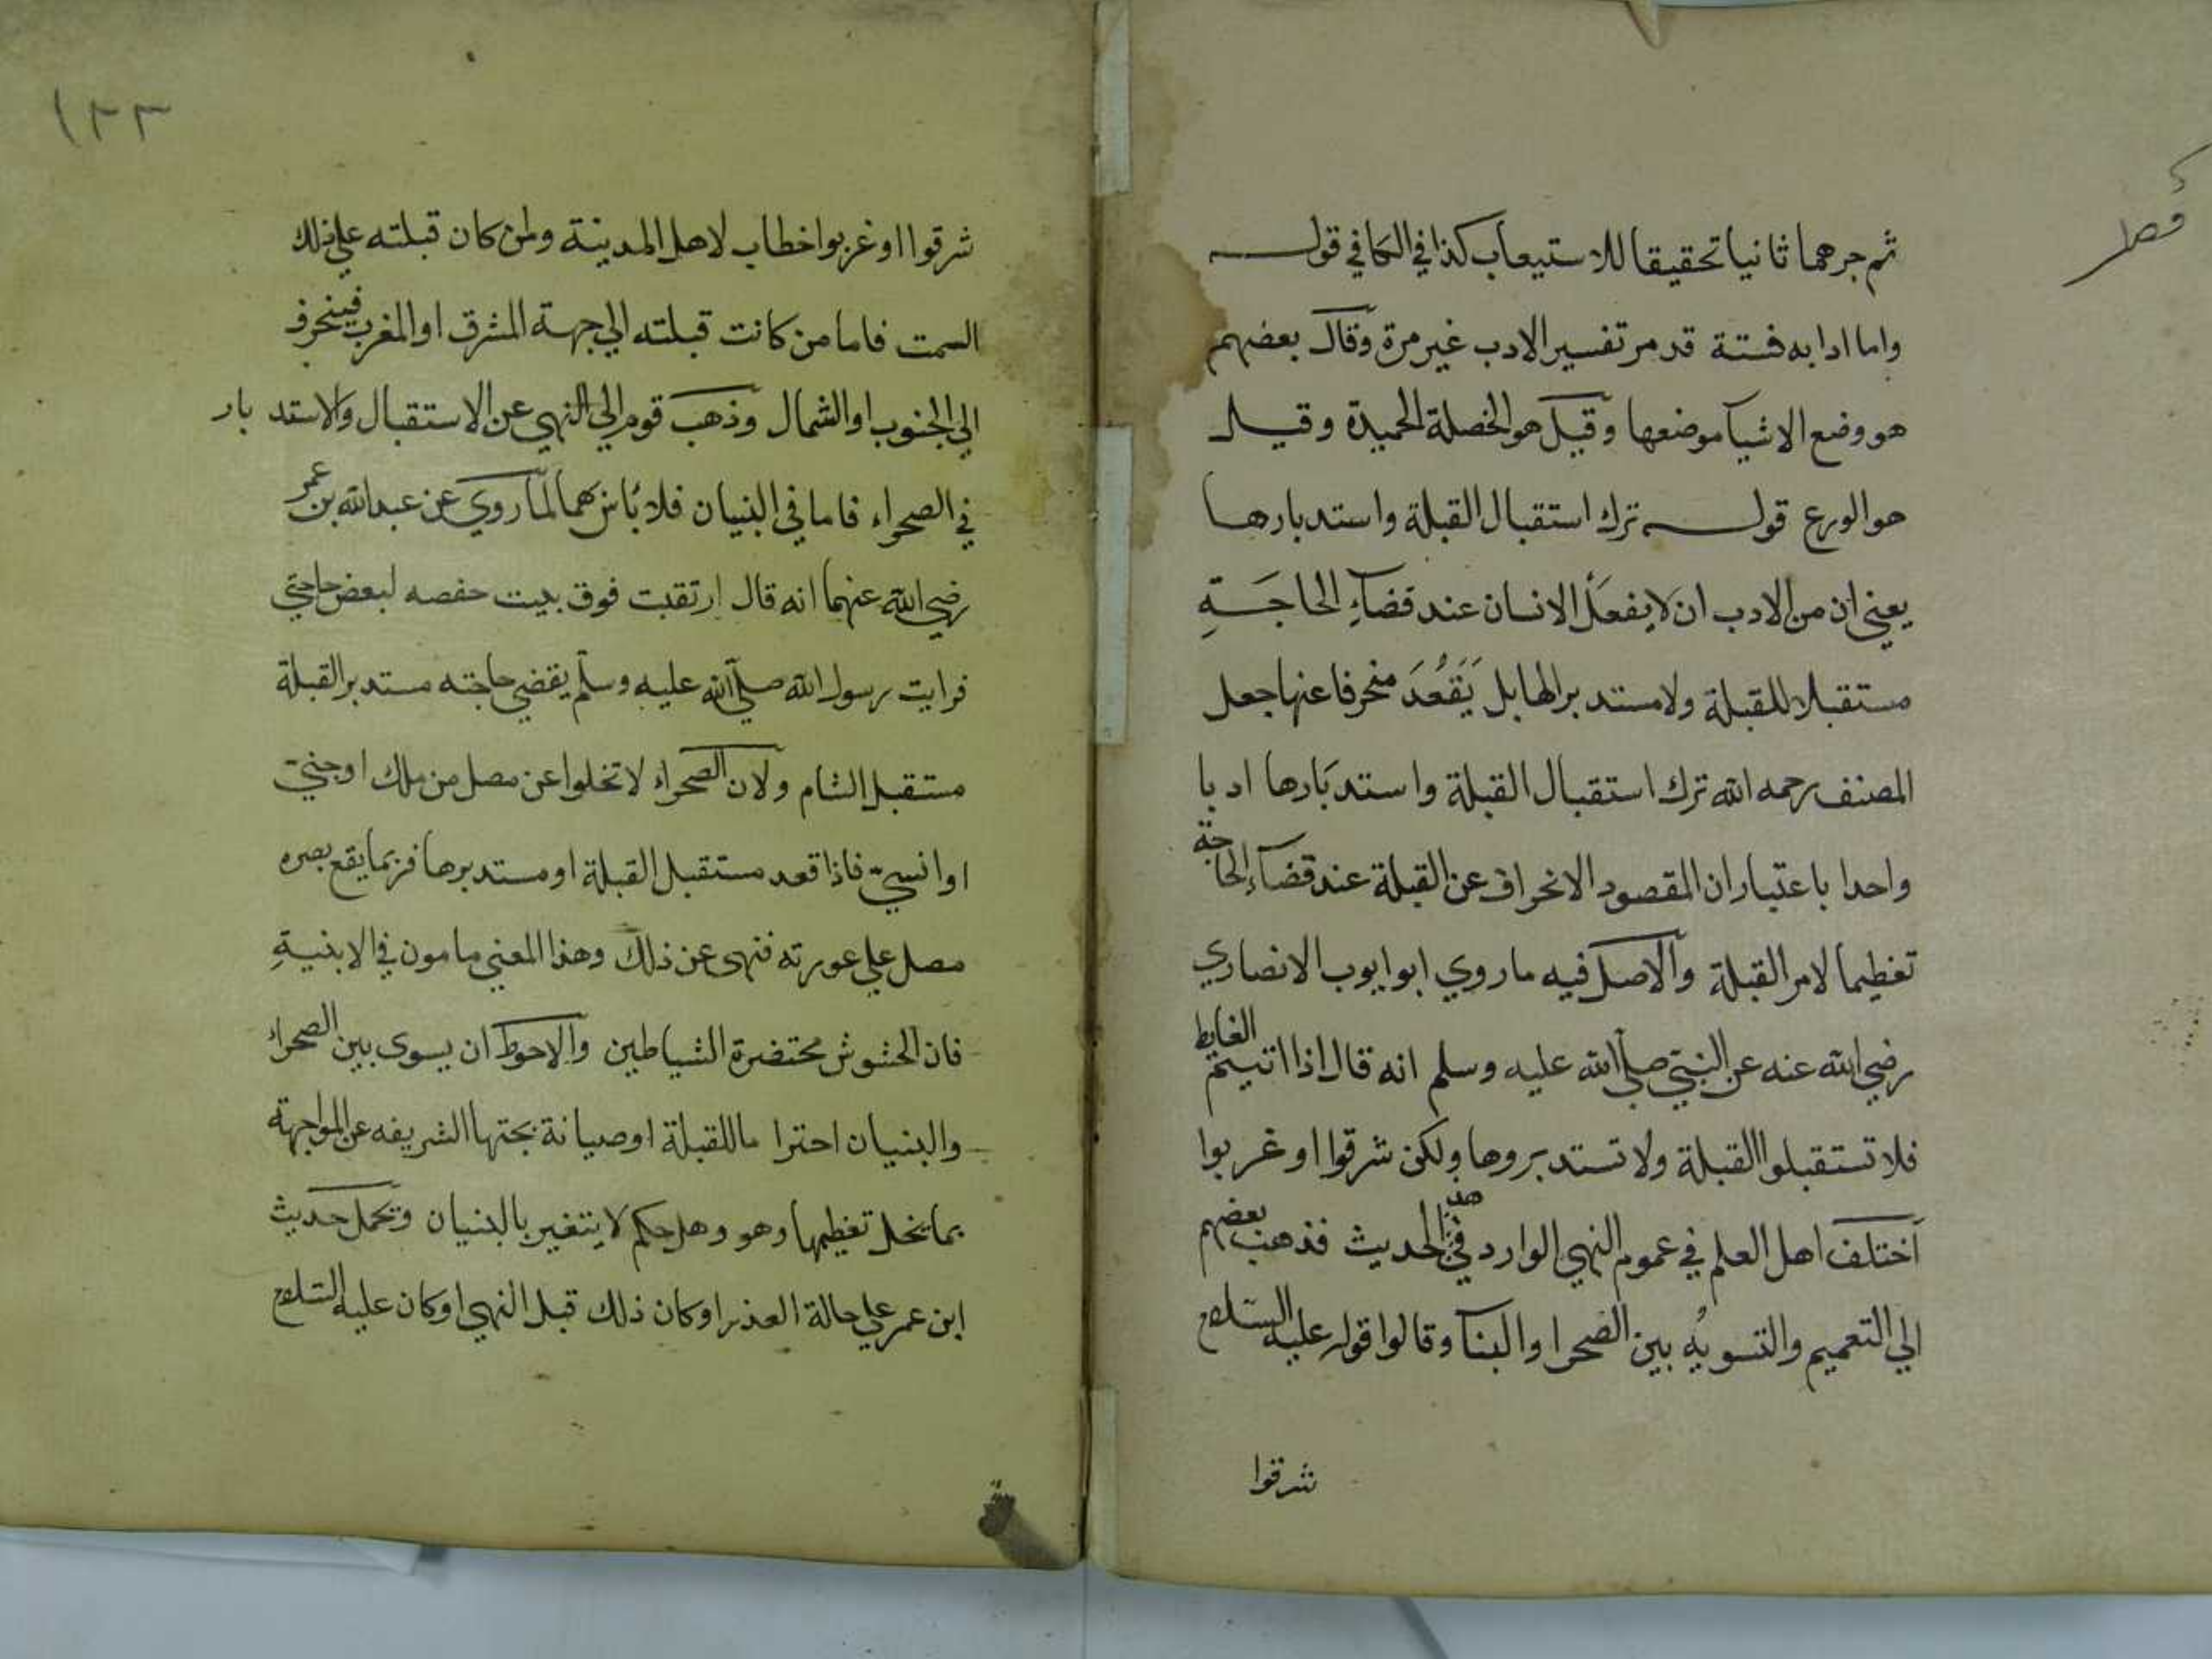 فصل
ثم جرهما ثانيا تحقيقا للاستيعاب كذا في الكافي قوله
واما ادابه فستة قد مر تفسير الادب غير مرة وقال بعضهم
هو وضع الاشيا موضعها وقيل هو الخصلة الحميدة وقيل
هو الورع قوله ترك استقبال القبلة واستدبارها
يعني ان من الادب ان لا يفعل الانسان عند قضاء الحاجة
مستقبلا للقبلة ولا مستدبرا لها بل يقعد منحرفا عنها جعل
المصنف رحمه الله ترك استقبال القبلة واستدبارها ادبا
واحدا باعتبار ان المقصود الانحراف عن القبلة عند قضاء الحاجة
تعظيما لامر القبلة والاصل فيه ما روي ابو ايوب الانصاري
رضي الله عنه عن النبي صلى الله عليه وسلم انه قال اذا اتيتم الغايط
فلا تستقبلوا القبلة ولا تستدبروها ولكن شرقوا او غربوا
اختلف اهل العلم في عموم النهي الوارد في هذا الحديث فذهب بعضهم
الي التعميم والتسويه بين الصحرا والبنآ وقالوا قوله عليه السلام
شرقوا
١٣٣
شرقوا او غربوا خطاب لاهل المدينة ولمن كان قبلته علي ذلك
السمت فاما من كانت قبلته الي جهة المشرق او المغرب فينحرف
الي الجنوب او الشمال وذهب قوم الي النهي عن الاستقبال والاستدبار
في الصحراء فاما في البنيان فلا بأس بهما لما روي عن عبد الله بن عمر
رضي الله عنهما انه قال ارتقيت فوق بيت حفصه لبعض حاجتي
فرايت رسول الله صلي الله عليه وسلم يقضي حاجته مستدبر القبلة
مستقبل الشام ولان الصحراء لا تخلوا عن مصل من ملك او جني
او انسي فاذا قعد مستقبل القبلة او مستدبرها فربما يقع بصره
مصل علي عورته فنهى عن ذلك وهذا المعني مامون في الابنية
فان الحشوش محتضرة الشياطين والاحوط ان يسوى بين الصحراء
والبنيان احتراما للقبلة او صيانة بجتها الشريفه عن المواجهة
بما يخل تعظيمها وهو وهل حكم لا يتغير بالبنيان وتحمل حديث
ابن عمر علي حالة العذر او كان ذلك قبل النهي او كان عليه السلام